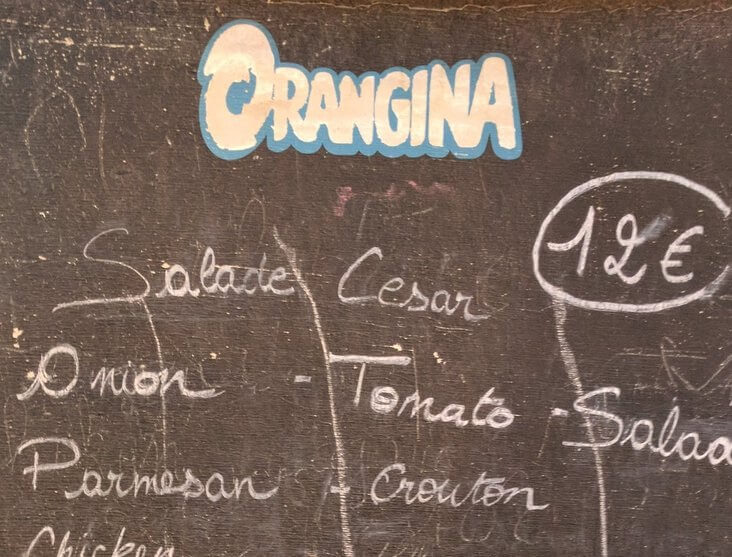 ORANGINA
Salade Cesar 12€
Onion - Tomato - Salad
Parmesan - Crouton
Chicken